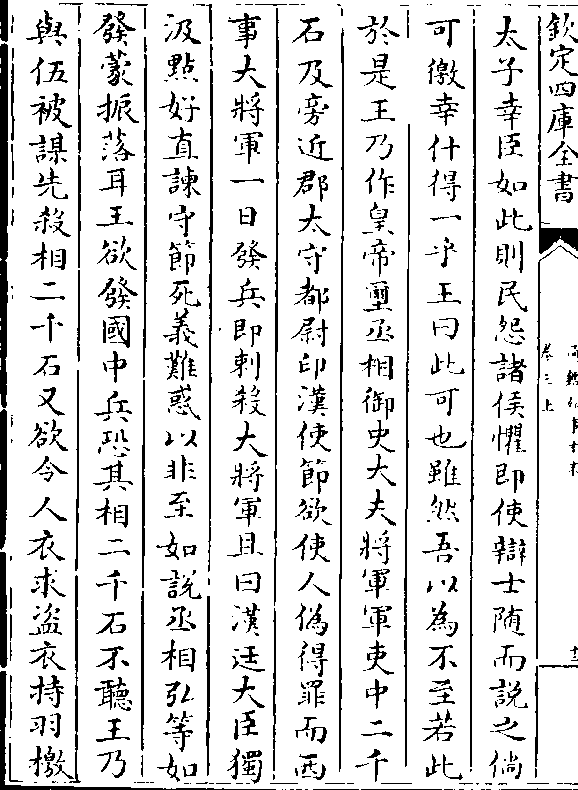 欽定四庫全書
卷三上
太子幸臣如此則民怨諸侯懼即使辯士隨而說之倘
可徼幸什得一乎王曰此可也雖然吾以為不至若此
於是王乃作皇帝璽丞相御史大夫將軍軍吏中二千
石及旁近郡太守都尉印漢使節欲使人偽得罪而西
事大將軍一日發兵即刺殺大將軍且曰漢廷大臣獨
汲黯好直諫守節死義難惑以非至如說丞相弘等如
發蒙振落耳王欲發國中兵恐其相二千石不聽王乃
與伍被謀先殺相二千石又欲令人衣求盜衣持羽檄